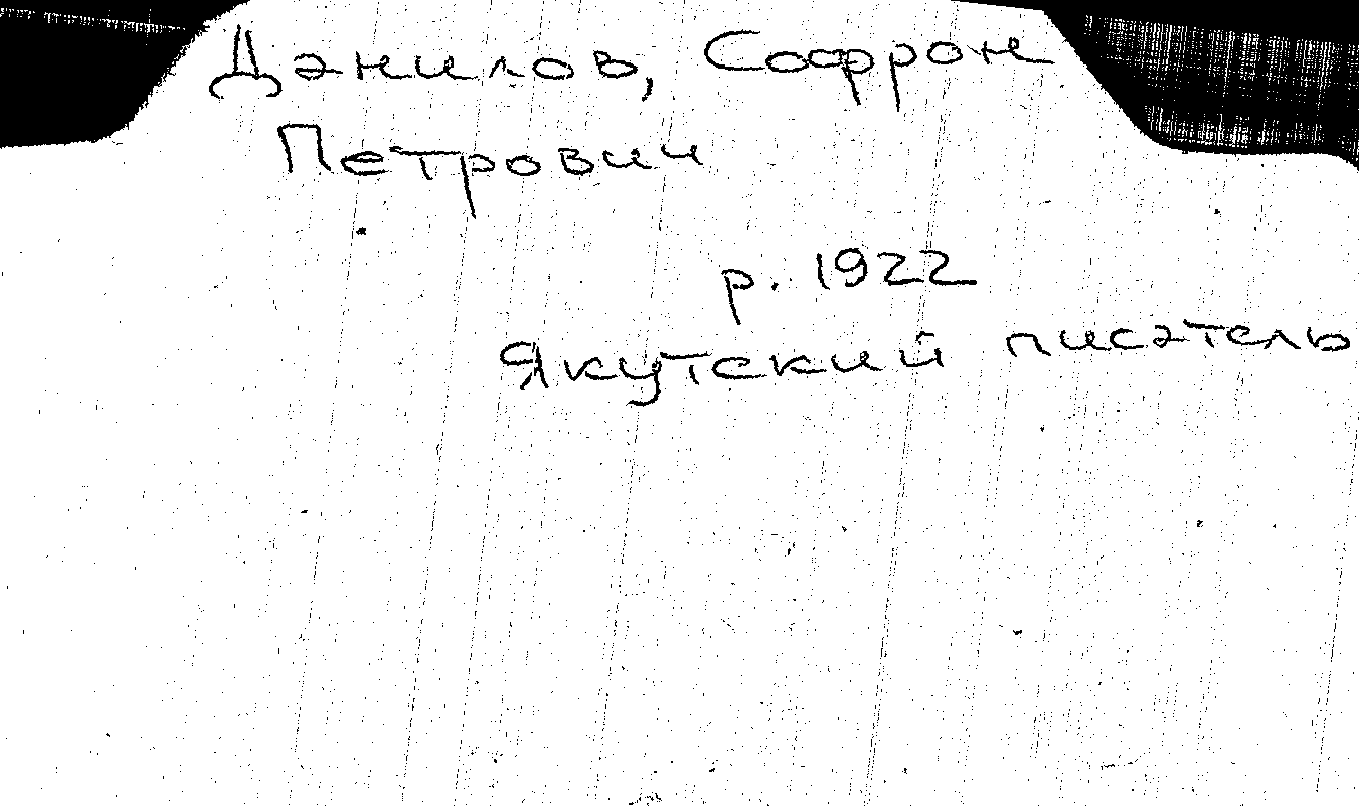 Данилов, Софрон
Петрович
р. 1922
Якутский писатель